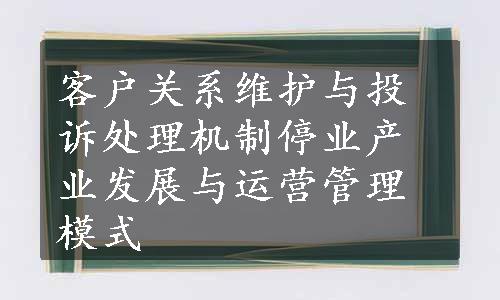 客户关系维护与投
诉处理机制停业产
业发展与运营管理
模式